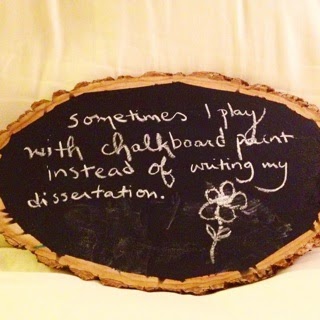 sometimes I play
with chalkboard paint
instead of writing my
dissertation.